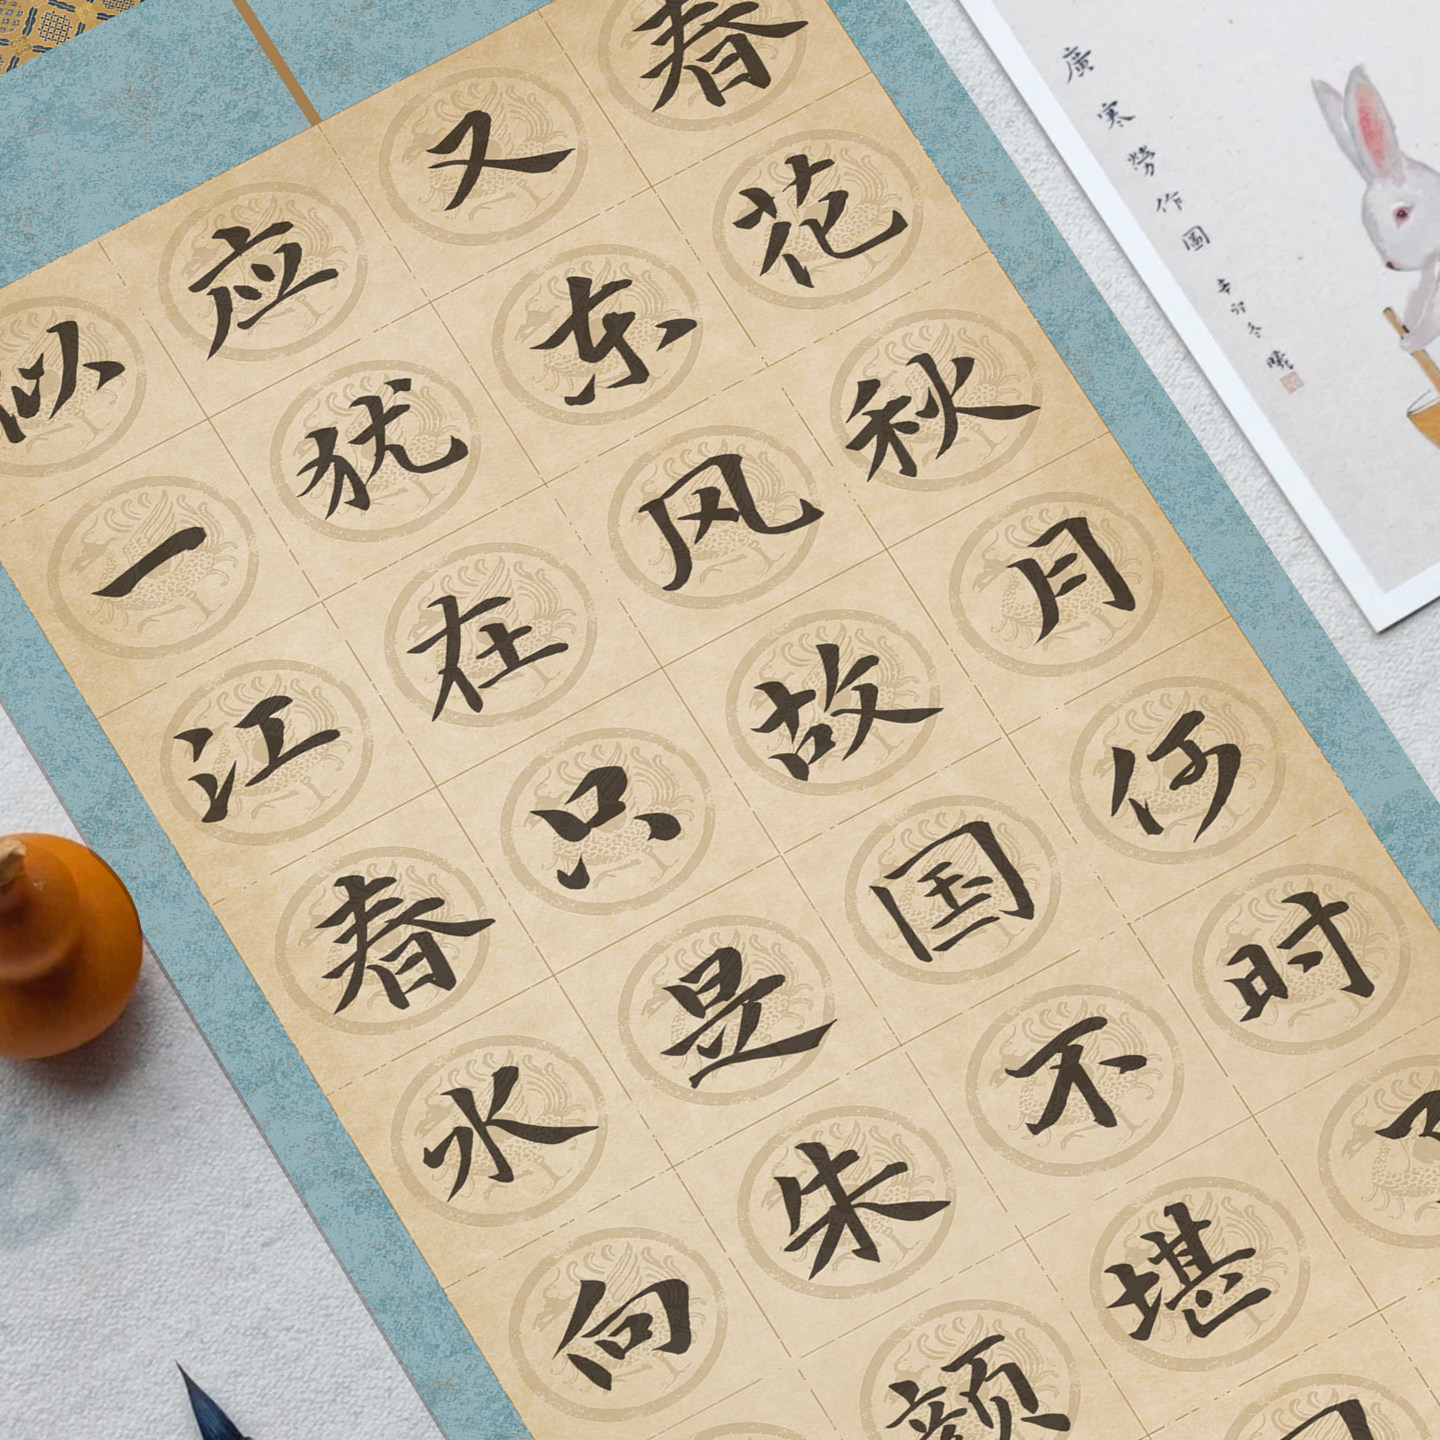 春花秋月何时
又东风故国不堪
应犹在只是朱颜
似一江春水向
廣寒勞作圖
辛卯冬